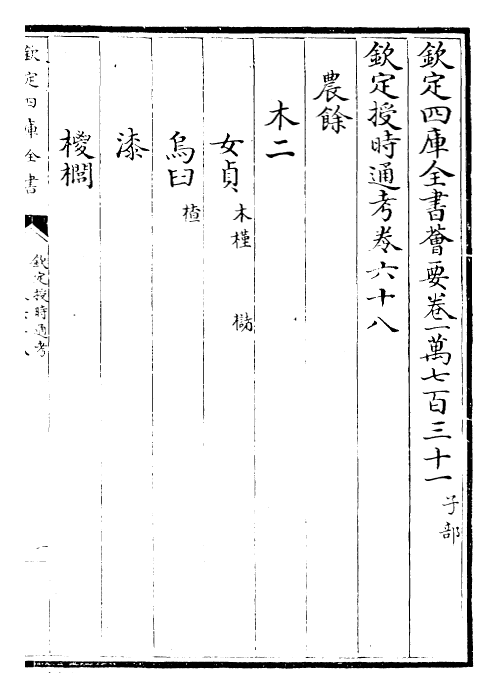 欽定四庫全書薈要卷一萬七百三十一 子部
欽定授時通考卷六十八
農餘
木二
女貞 木槿 櫤
烏臼 樝
漆
椶櫚
欽定四庫全書
欽定授時通考
一